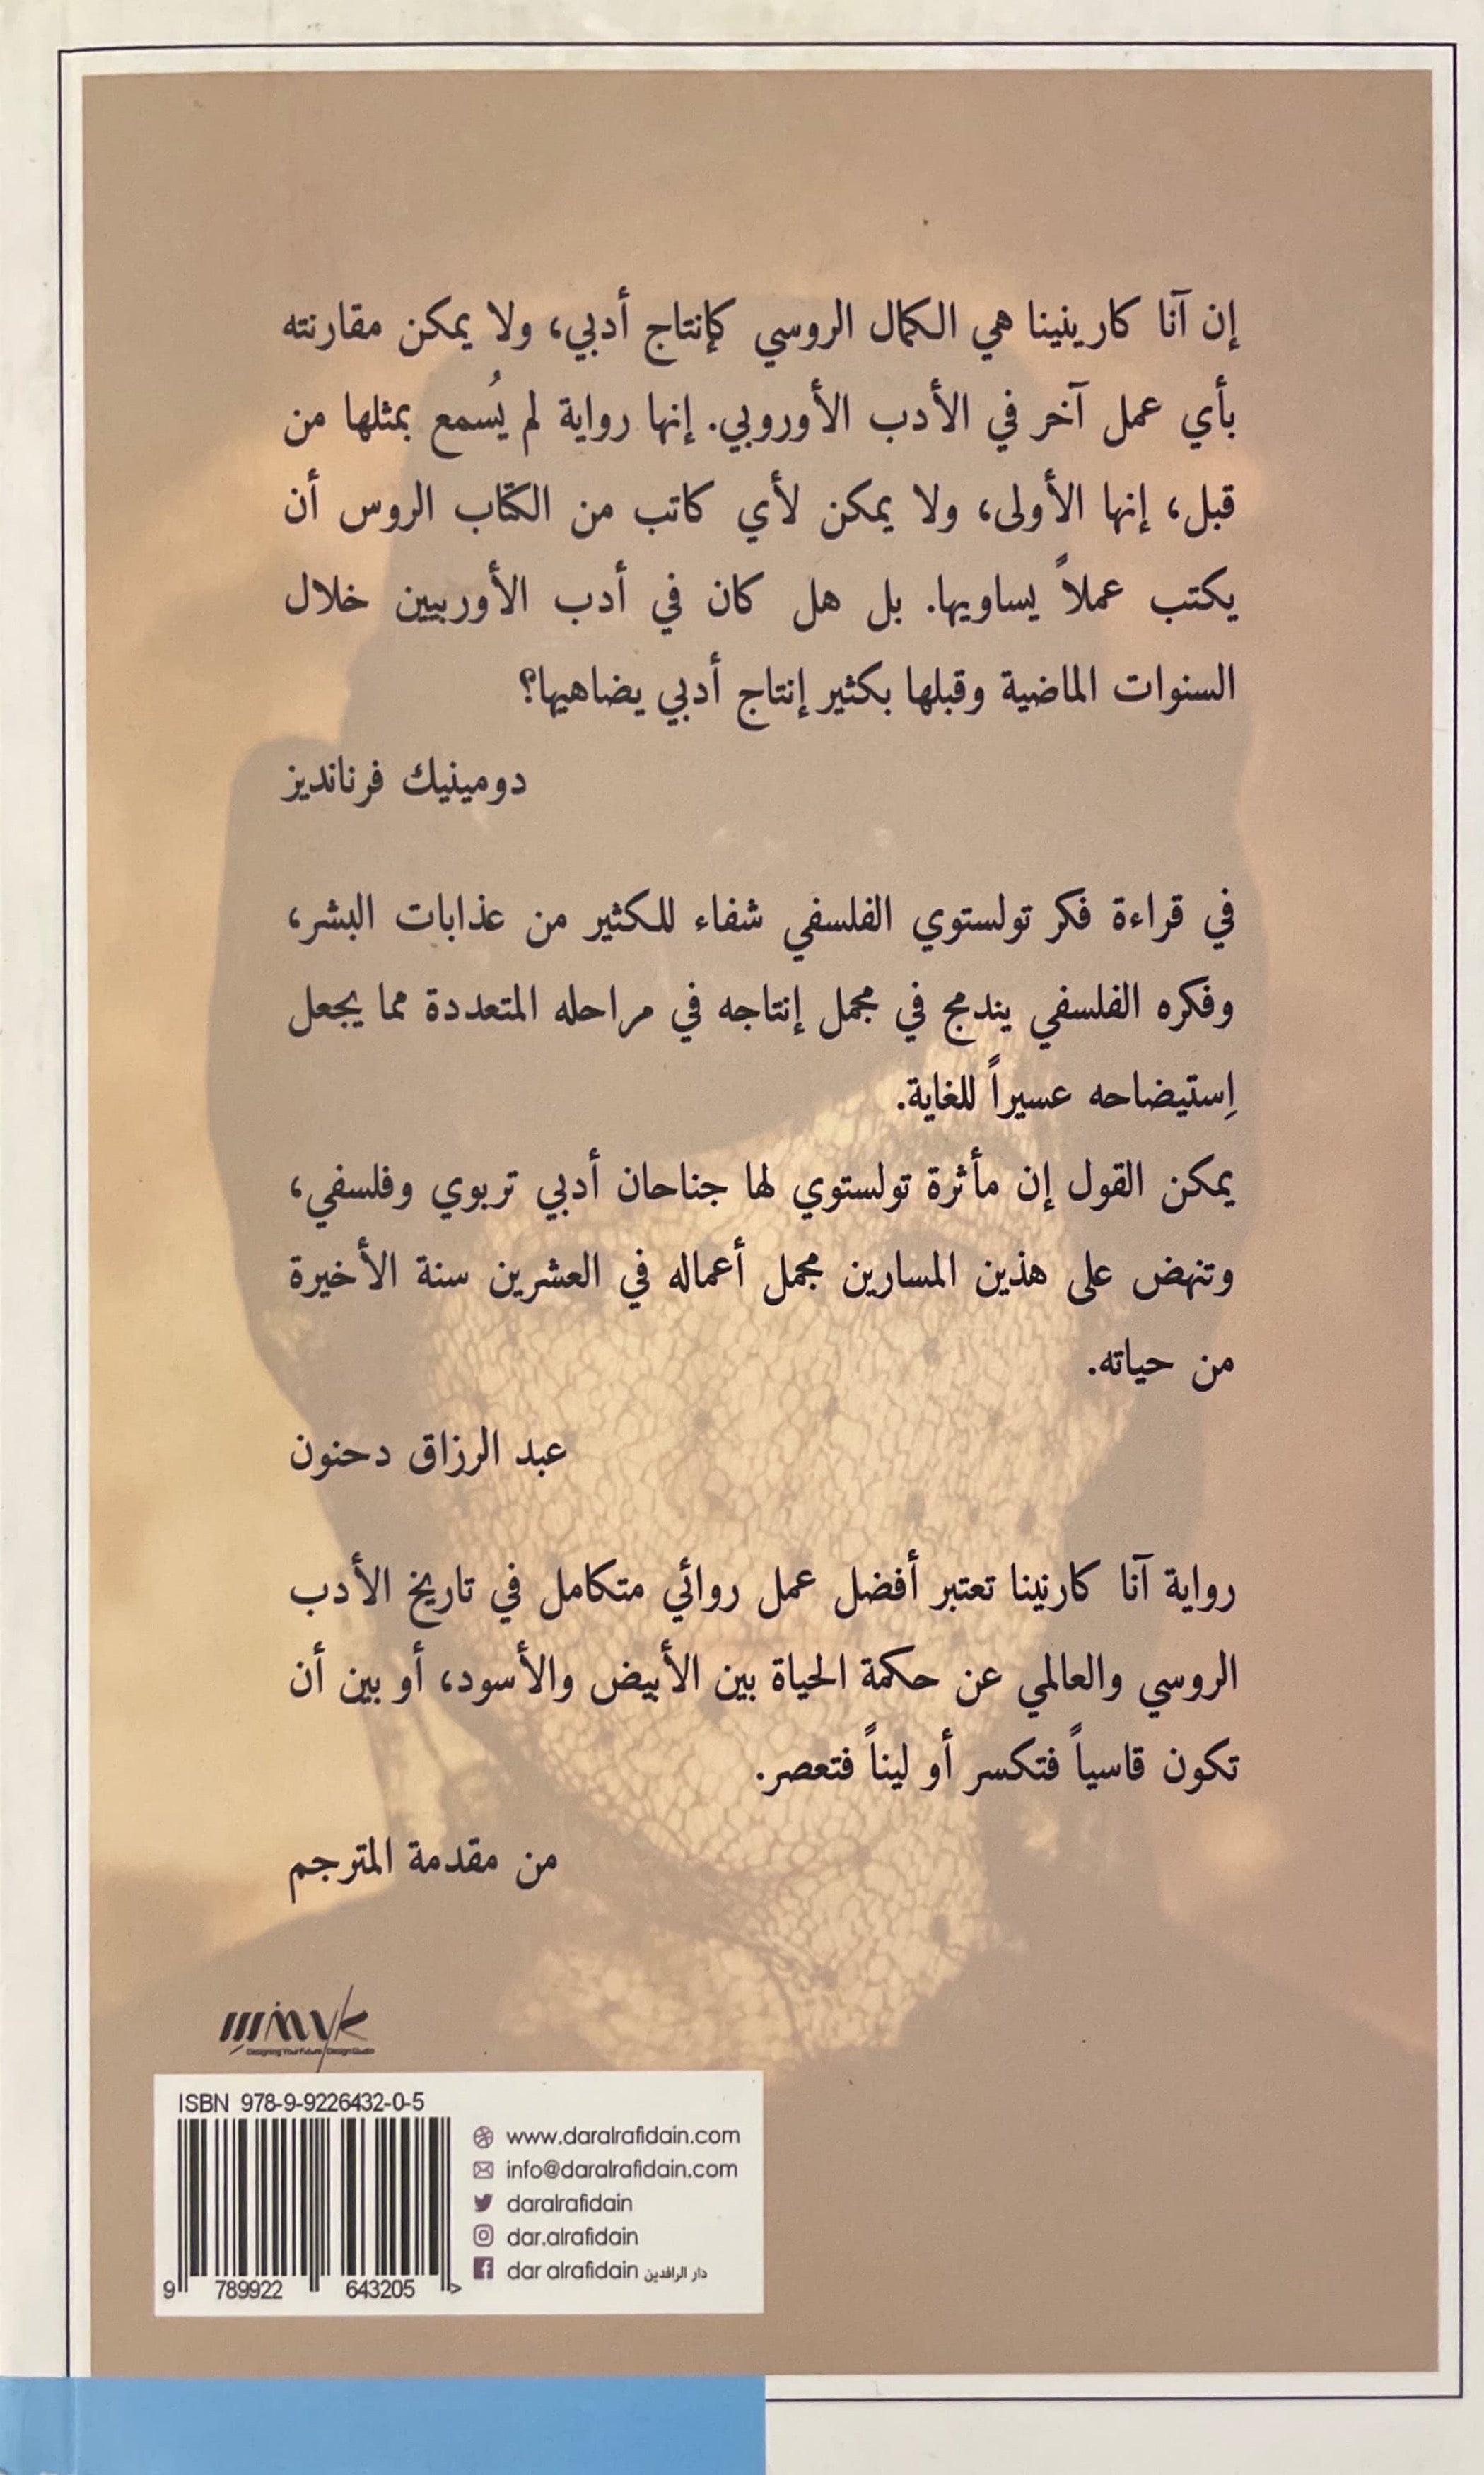 إن آنا كارينينا هي الكمال الروسي كإنتاج أدبي، ولا يمكن مقارنته
بأي عمل آخر في الأدب الأوروبي. إنها رواية لم يُسمع بمثلها من
قبل، إنها الأولى، ولا يمكن لأي كاتب من الكتّاب الروس أن
يكتب عملاً يساويها. بل هل كان في أدب الأوربيين خلال
السنوات الماضية وقبلها بكثير إنتاج أدبي يضاهيها؟
دومينيك فرنانديز
في قراءة فكر تولستوي الفلسفي شفاء للكثير من عذابات البشر،
وفكره الفلسفي يندمج في مجمل إنتاجه في مراحله المتعددة مما يجعل
اِستيضاحه عسيراً للغاية.
يمكن القول إن مأثرة تولستوي لها جناحان أدبي تربوي وفلسفي،
وتنهض على هذين المسارين مجمل أعماله في العشرين سنة الأخيرة
من حياته.
عبد الرزاق دحنون
رواية آنا كارنينا تعتبر أفضل عمل روائي متكامل في تاريخ الأدب
الروسي والعالمي عن حكمة الحياة بين الأبيض والأسود، أو بين أن
تكون قاسياً فتكسر أو ليناً فتعصر.
من مقدمة المترجم
Designing Your Future Design Studio
ISBN 978-9-9226432-0-5
www.daralrafidain.com
info@daralrafidain.com
daralrafidain
dar.alrafidain
dar alrafidain دار الرافدين
9 789922 643205 >